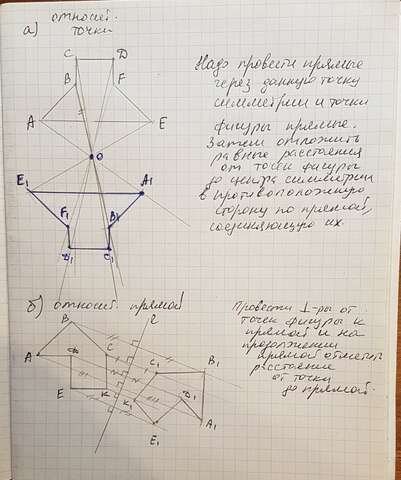 относит.
а) точки
C D
B F
A E
O
E₁ A₁
F₁ B₁
D₁ C₁
Надо провести прямые
через данную точку
симметрии и точки
фигуры прямые.
Затем отложить
равные расстояния
от точек фигуры
до центра симметрии
в противоположную
сторону по прямой,
соединяющую их.
б) относит. прямой
B
A C C₁ B₁
E K K₁ D₁ A₁
E₁
Провести ⊥-ры от
точек фигуры к
прямой и на
продолжении
прямой отметить
расстояние
от точки
до прямой.